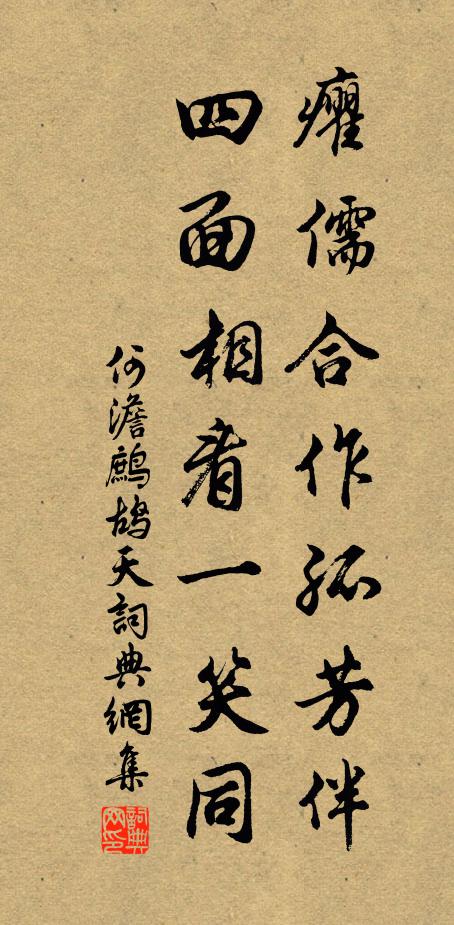 癯儒合作孤芳伴
四面相看一笑同
何澹鷓鴣天詞典網集
詞典网印